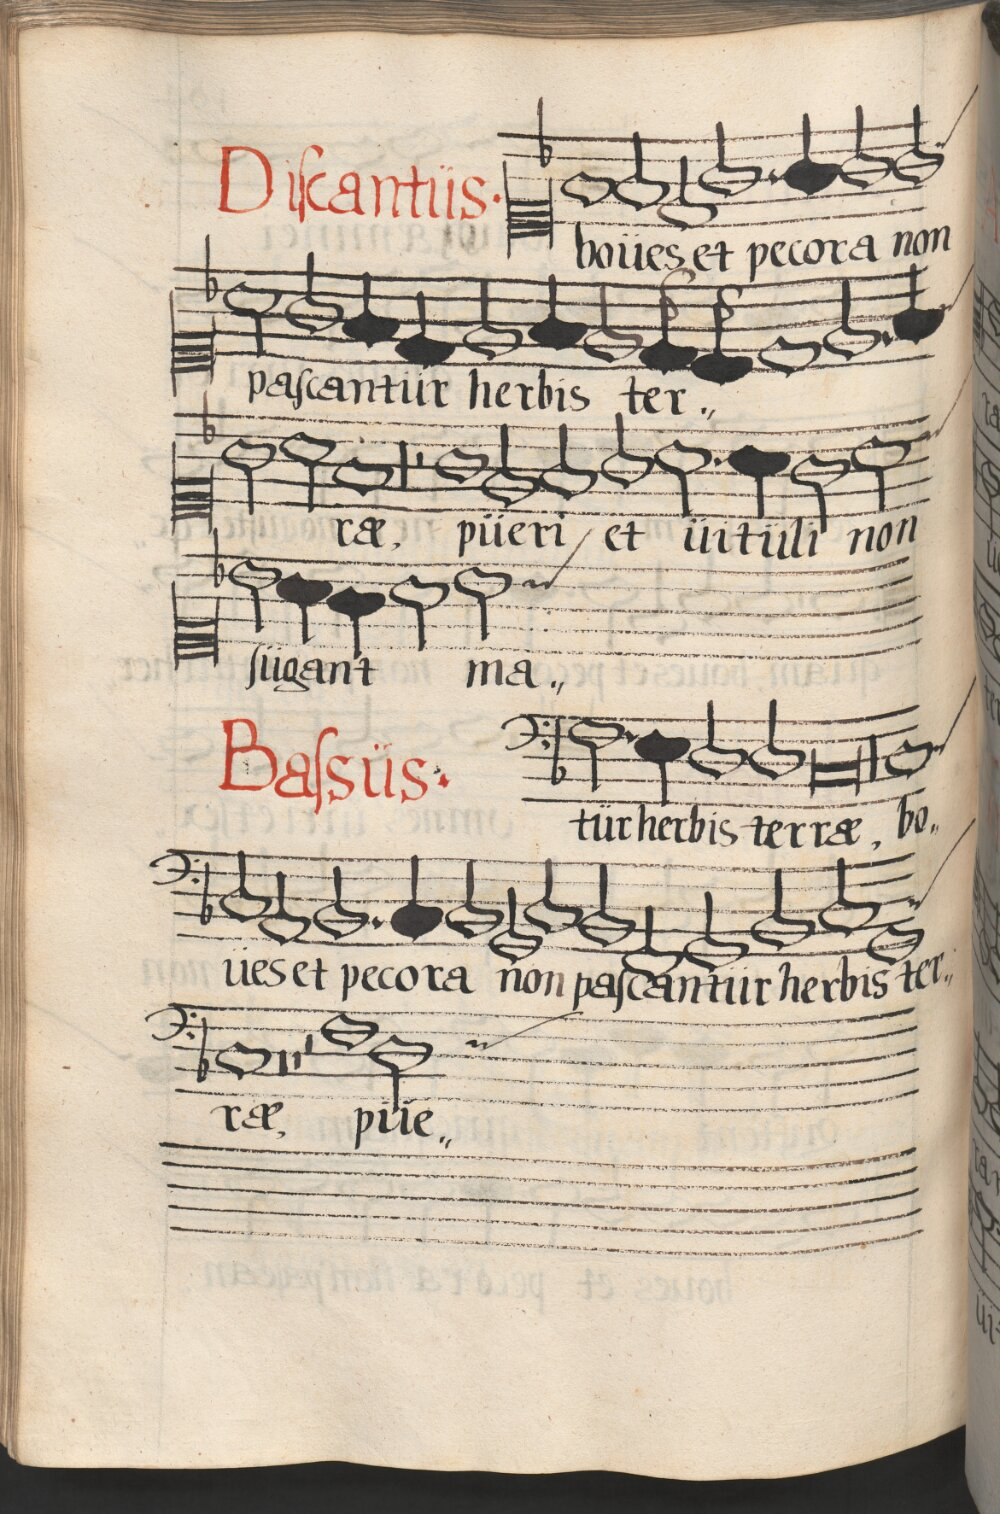 Diſcantüs.
boües et pecora non
paſcantür herbis ter„
ræ, püeri et üitüli non
ſügant ma„
Baſsüs.
tür herbis terræ, bo„
ües et pecora non paſcantür herbis ter„
ræ, püe„